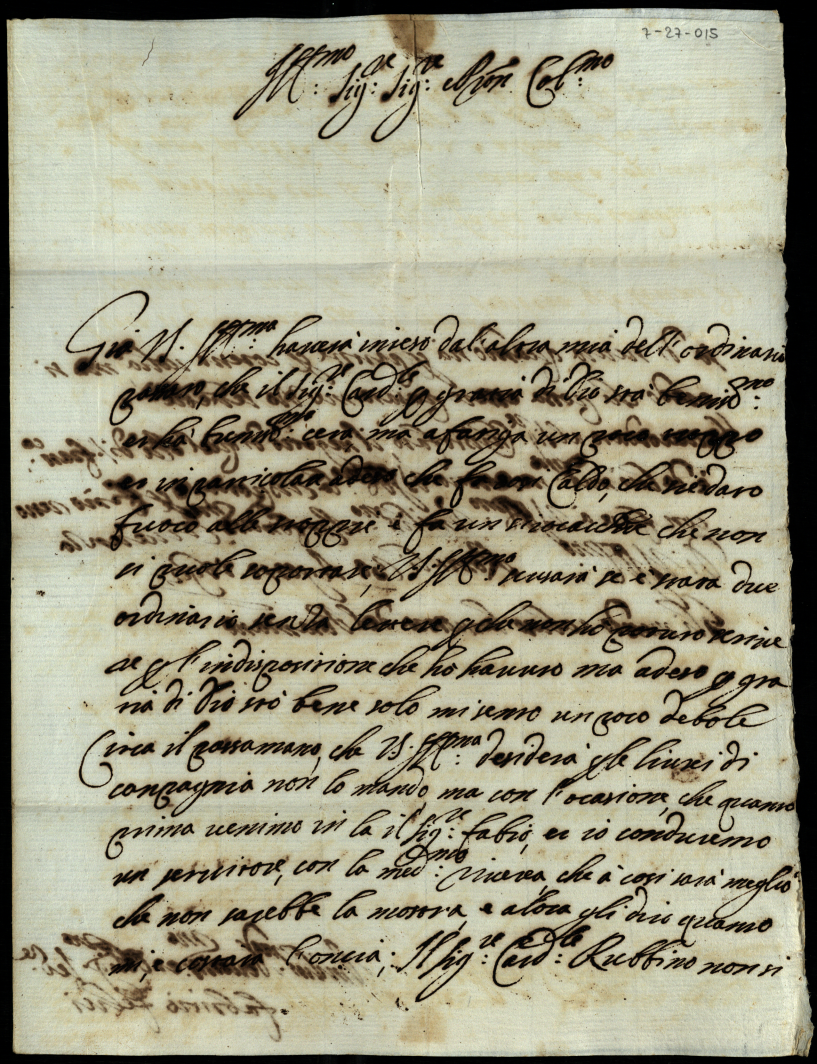 7-27-015
Ill:mo Sig:re Sig:re e Pron Col:mo
Già V. Ill:ma haverà inteso dal'altra mia dell'ordinario
passato, che il Sig:re Card:le p gratia di Dio sta beniss:mo
et ha buoniss:mo cera ma afatiga un poco
et in particolar adeso che fa un Caldo, che
fuoco alle e fa un che non
si puole soportare, V. Ill:ma scusarà se è stata due
ordinario senza letere p che non ho potuto scrive
re p l'indispositione che ho hauuto ma adeso p gra
tia di Dio stò bene solo mi sento un poco debole
Circa il passamano, che V. Ill:ma desidera p le liurei di
conpagnia non lo mando ma con l'ocasione, che quanto
prima venimo in la il Sig:re Fabio, et io conduremo
un servitore, con la med:mo che à cosi sarà meglio
che non sarebbe la mostra, e alora gli dirò quanto
mi, e costata l'oncia; Il Sig:re Card:le Rubbino non si